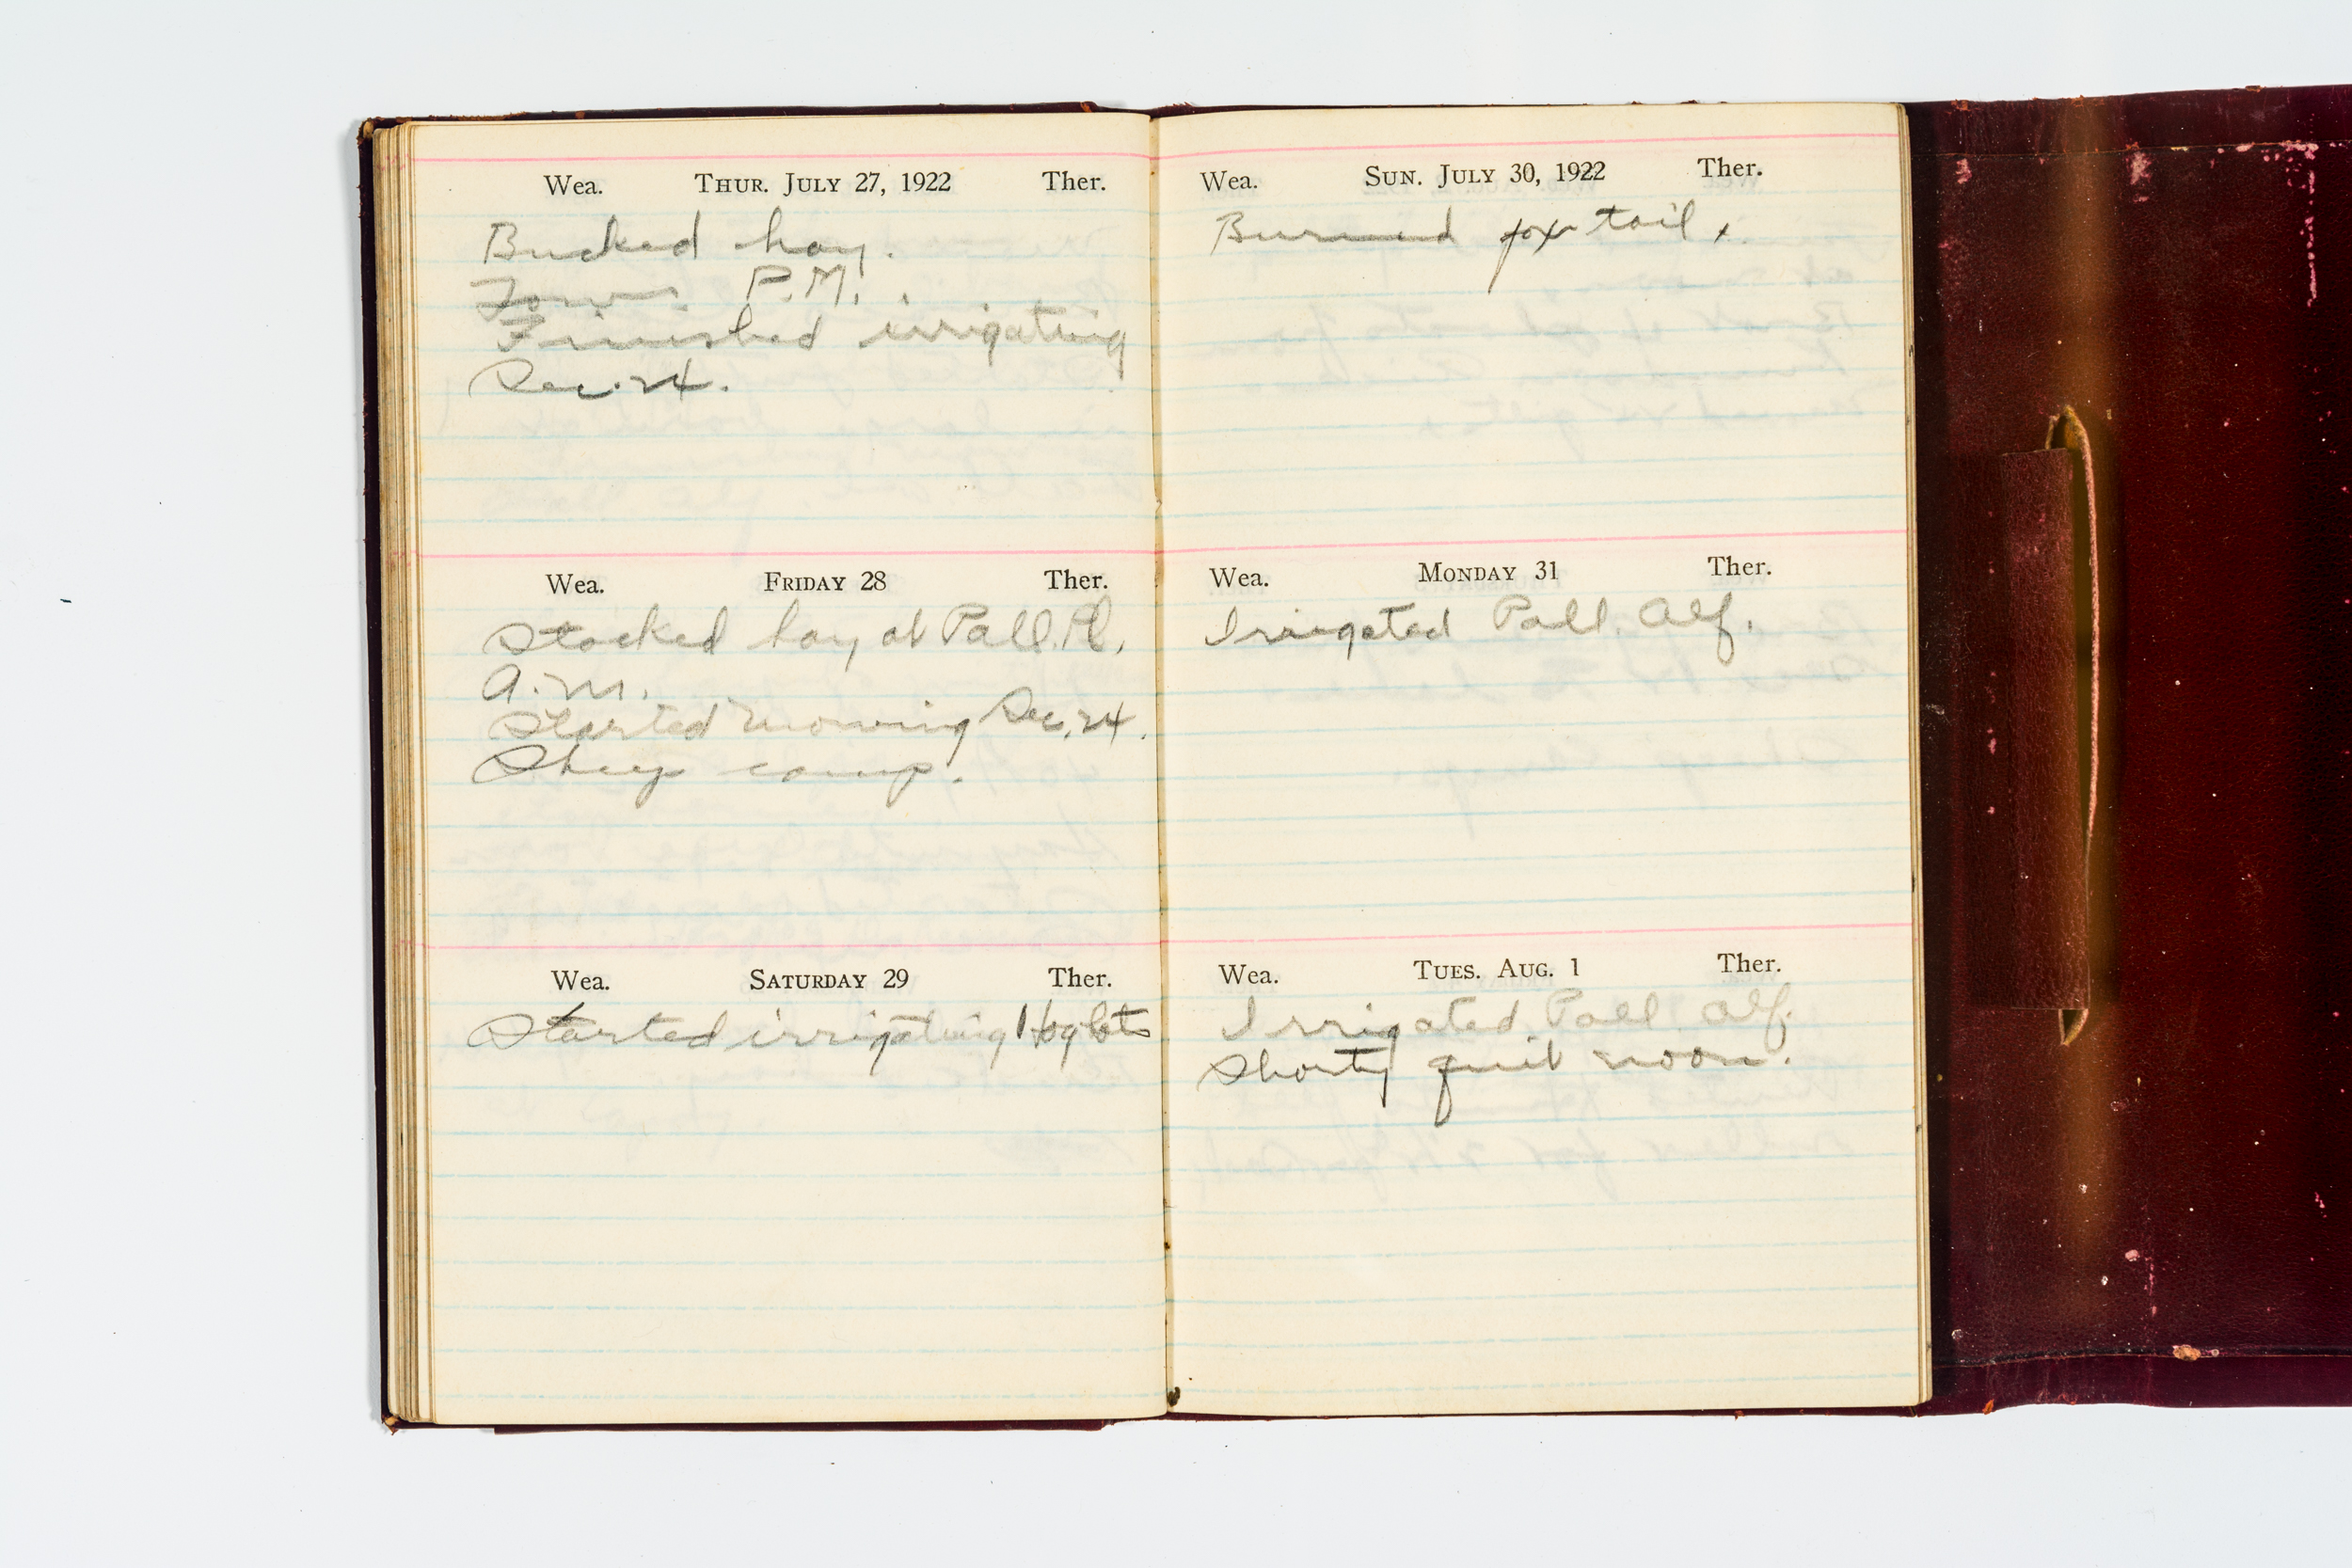 Wea. Thur. July 27, 1922 Ther.
Bucked hay.
Town P.M.
Finished irrigating
Sec. 24.
Wea. Friday 28 Ther.
Stacked hay at Pall. Pl.
A.M.
Started mowing Sec. 24.
Sheep camp.
Wea. Saturday 29 Ther.
Started irrigating Hog lots
Wea. Sun. July 30, 1922 Ther.
Burned fox tail.
Wea. Monday 31 Ther.
Irrigated Pall. Alf.
Wea. Tues. Aug. 1 Ther.
Irrigated Pall. Alf.
Shorty quit noon.